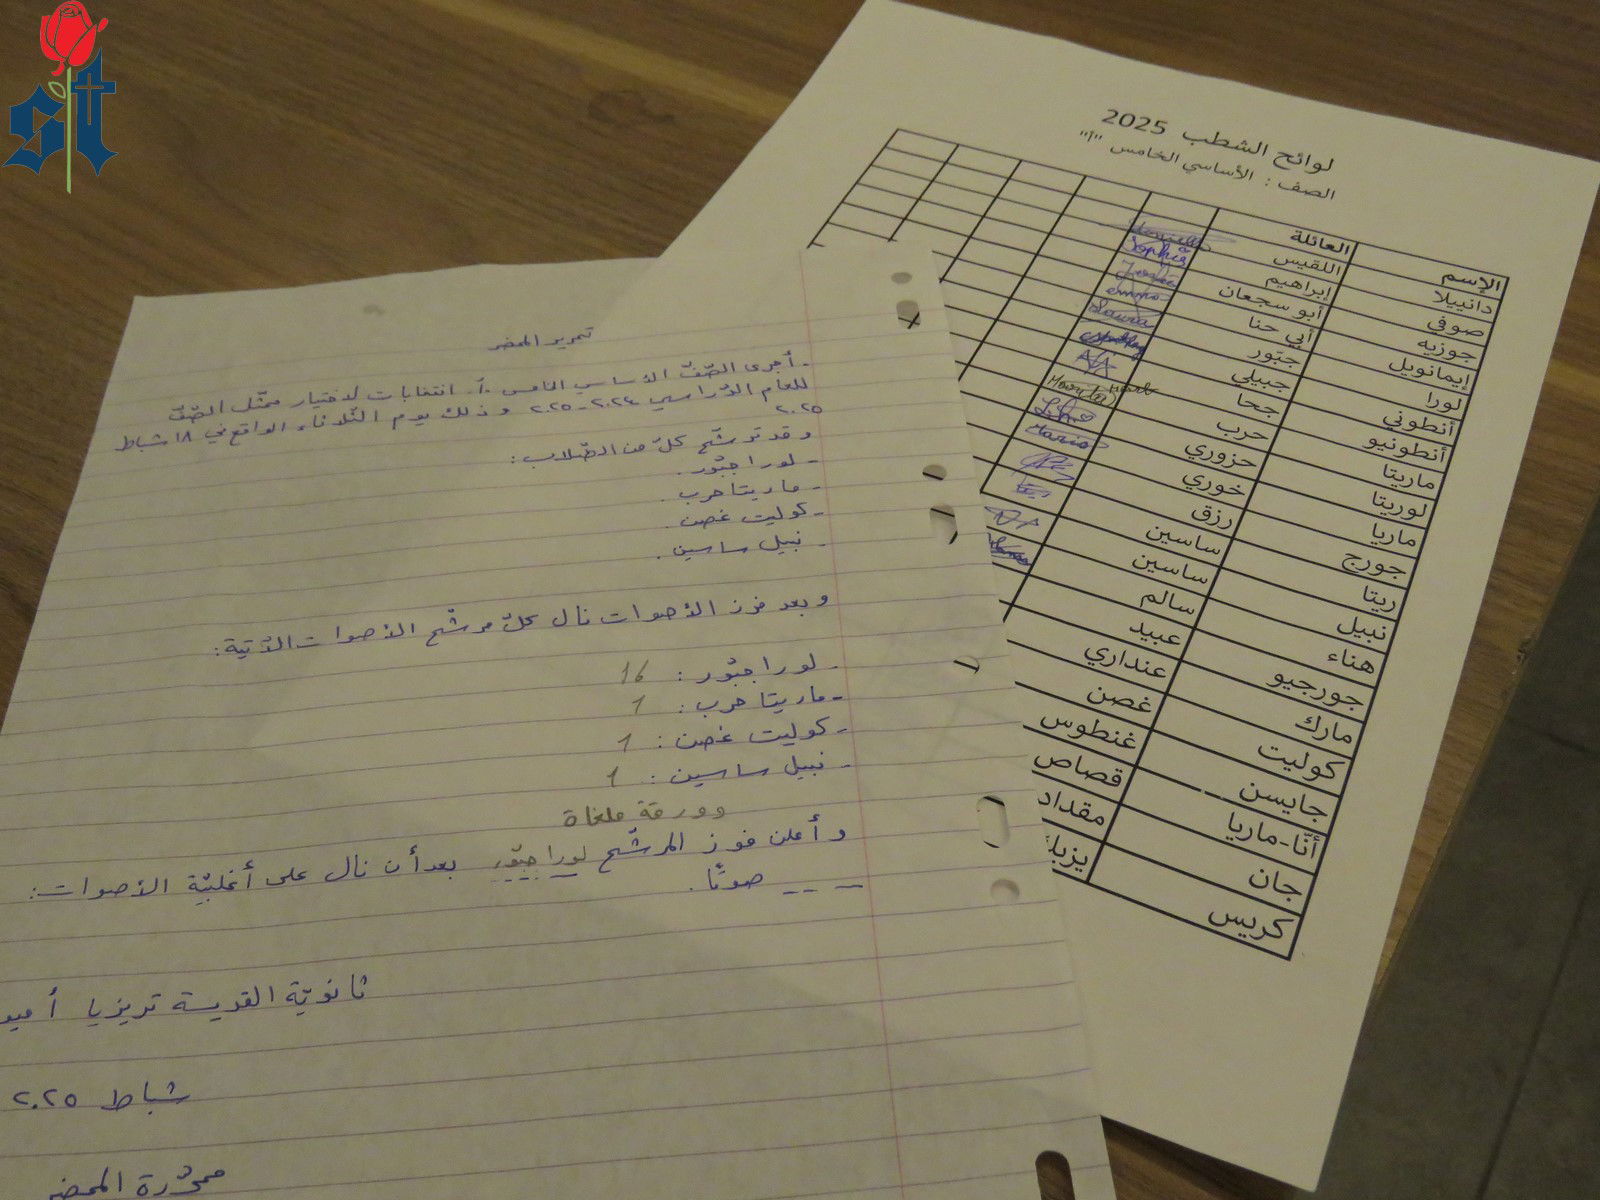 st
تحرير المحضر
- أجرى الصّفّ الأساسي الخامس -أ- انتخابات لاختيار ممثّل الصّفّ
للعام الدّراسي ٢٠٢٤-٢٠٢٥ وذلك يوم الثّلاثاء الواقع في ١٨ شباط
٢٠٢٥
وقد ترشّح كلّ من الطّلاب:
- لورا جبّور.
- ماريتا حرب.
- كوليت غصن.
- نبيل ساسين.
وبعد فرز الأصوات نال كلّ مرشّح الأصوات الآتية:
- لورا جبّور: 16
- ماريتا حرب: 1
- كوليت غصن: 1
- نبيل ساسين: 1
وورقة ملغاة
وأعلن فوز المرشّح لورا جبّور بعد أن نال على أغلبيّة الأصوات:
--- صوتًا.
ثانويّة القديسة تريزيا أميو
شباط ٢٠٢٥
محرّرة المحضر
لوائح الشطب 2025
الصف : الأساسي الخامس "أ"
الإسم العائلة
دانييلا اللقيس
صوفي إبراهيم Sophia
جوزيه أبو سجعان
إيمانويل أبي حنا
لورا جبّور Laura
أنطوني جبيلي
أنطونيو جحا
ماريتا حرب Marita Harb
لوريتا حزوري
ماريا خوري Maria
جورج رزق
ريتا ساسين
نبيل ساسين
هناء سالم
جورجيو عبيد
مارك عنداري
كوليت غصن
جايسن غنطوس
أنّا-ماريا قصاص
جان مقداد
كريس يزبك